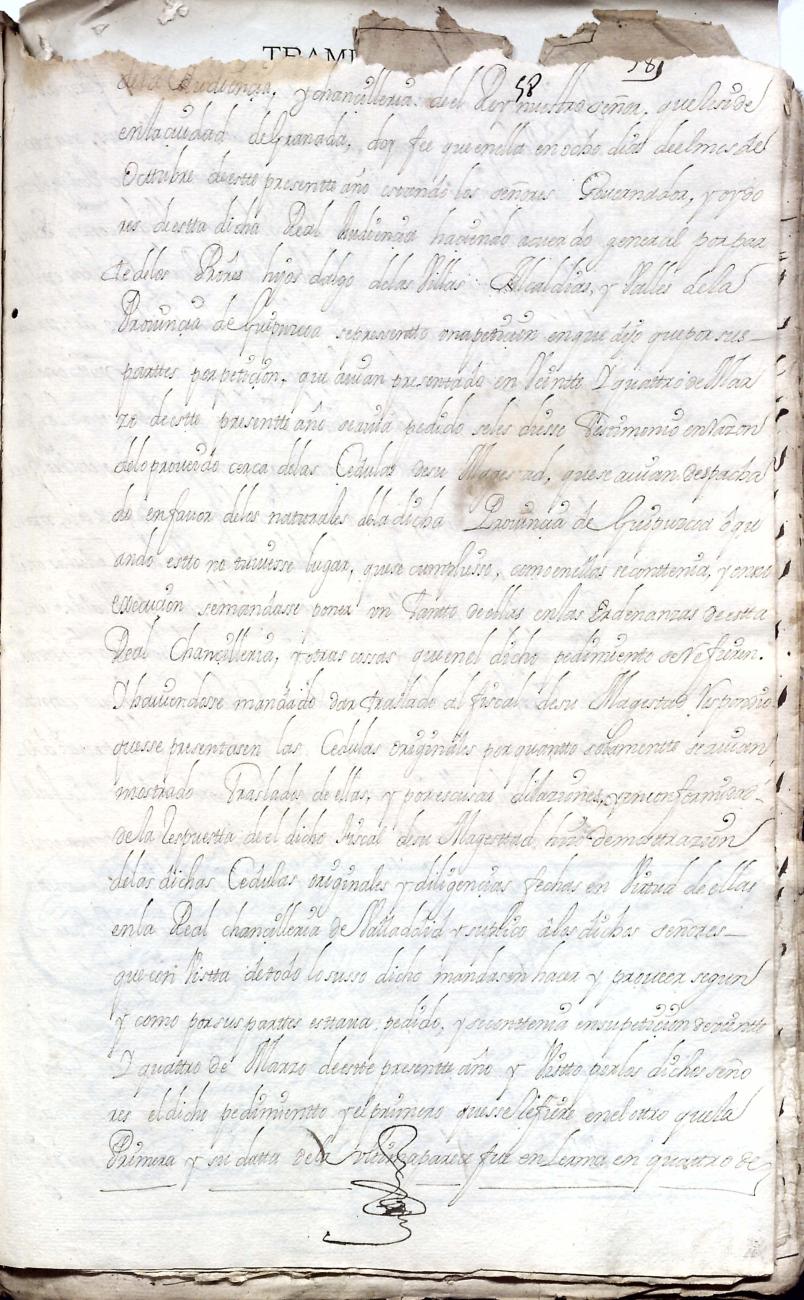 TRAMI
58
581
dela Audiençia, y chançilleria de el Rey nuestro señor, que reside
en la çiudad de Granada, doy fee que en ella en ocho dias de el mes de
Octtubre de este presentte año estando los señores Governador, y oydo
res de estta dicha Real Audiencia haciendo acuerdo general por par
te de los Prores hijos dalgo de las Villas Alcaldias, y Valles de la
Provinçia de Guipuzcoa se pressentto una peticion en que dijo que por sus
parttes por peticion, que avian presentado en Veintte I quattro de Mar
zo de estte presentte año se avia pedido se les diesse Testtimonio en Razon
de lo proveido cerca de las Cedulas de su Magestad, que se avian despacha
do en favor de los naturales de la dicha Provinçia de Guipuzcoa ô qu
ando estto no tuviesse lugar, que se cumpliesse, como en ellas se conttenia, y en su
execucion se mandasse poner un Tantto de ellas en las Ordenanzas de estta
Real Chançilleria, y otras cossas que en el dicho pedimiento se Refieren.
I haviendosse mandado dar traslado al fiscal de su Magestad Respondio
que sse presentasen las Cedulas originales por quantto solamente se avian
mostrado Traslados de ellas, y por escusar dilaziones, y en conformidad
de la Respuestta de el dicho fiscal de su Magesttad, hizo demostrazion
de las dichas Cedulas originales y diligençias fechas en Virtud de ellas
en la Real chançilleria de Valladolid y suplico â los dichos señores
que con Vistta de todo lo susso dicho mandasen hacer y proveer segun
y como por sus parttes esttava pedido, y se conttenia en su petiçion de veintte
I quattro de Marzo de estte presentte año y Vistto por los dichos seño
res el dicho pedimientto y el primero que sse Refiere en el otro que la
Primera y su datta de la pareçe fue en Lerma en quattro de